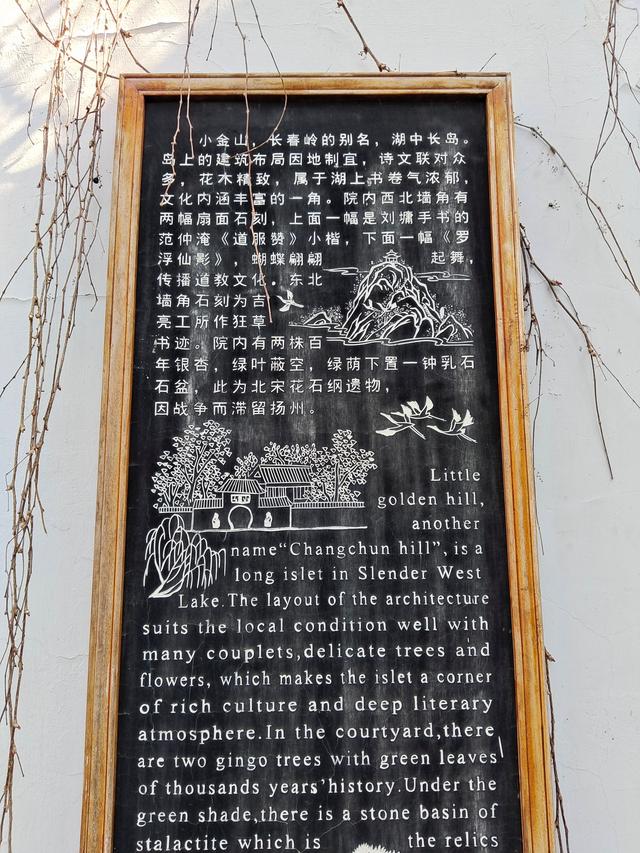 小金山，长春岭的别名，湖中长岛。
岛上的建筑布局因地制宜，诗文联对众
多，花木精致，属于湖上书卷气浓郁，
文化内涵丰富的一角。院内西北墙角有
两幅扇面石刻，上面一幅是刘墉手书的
范仲淹《道服赞》小楷，下面一幅《罗
浮仙影》，蝴蝶翩翩起舞，
传播道教文化。东北
墙角石刻为吉
亮工所作狂草
书迹。院内有两株百
年银杏，绿叶蔽空，绿荫下置一钟乳石
石盆，此为北宋花石纲遗物，
因战争而滞留扬州。
Little
golden hill,
another
name“Changchun hill”, is a
long islet in Slender West
Lake.The layout of the architecture
suits the local condition well with
many couplets,delicate trees and
flowers, which makes the islet a corner
of rich culture and deep literary
atmosphere.In the courtyard,there
are two gingo trees with green leaves
of thousands years'history.Under the
green shade,there is a stone basin of
stalactite which is the relics